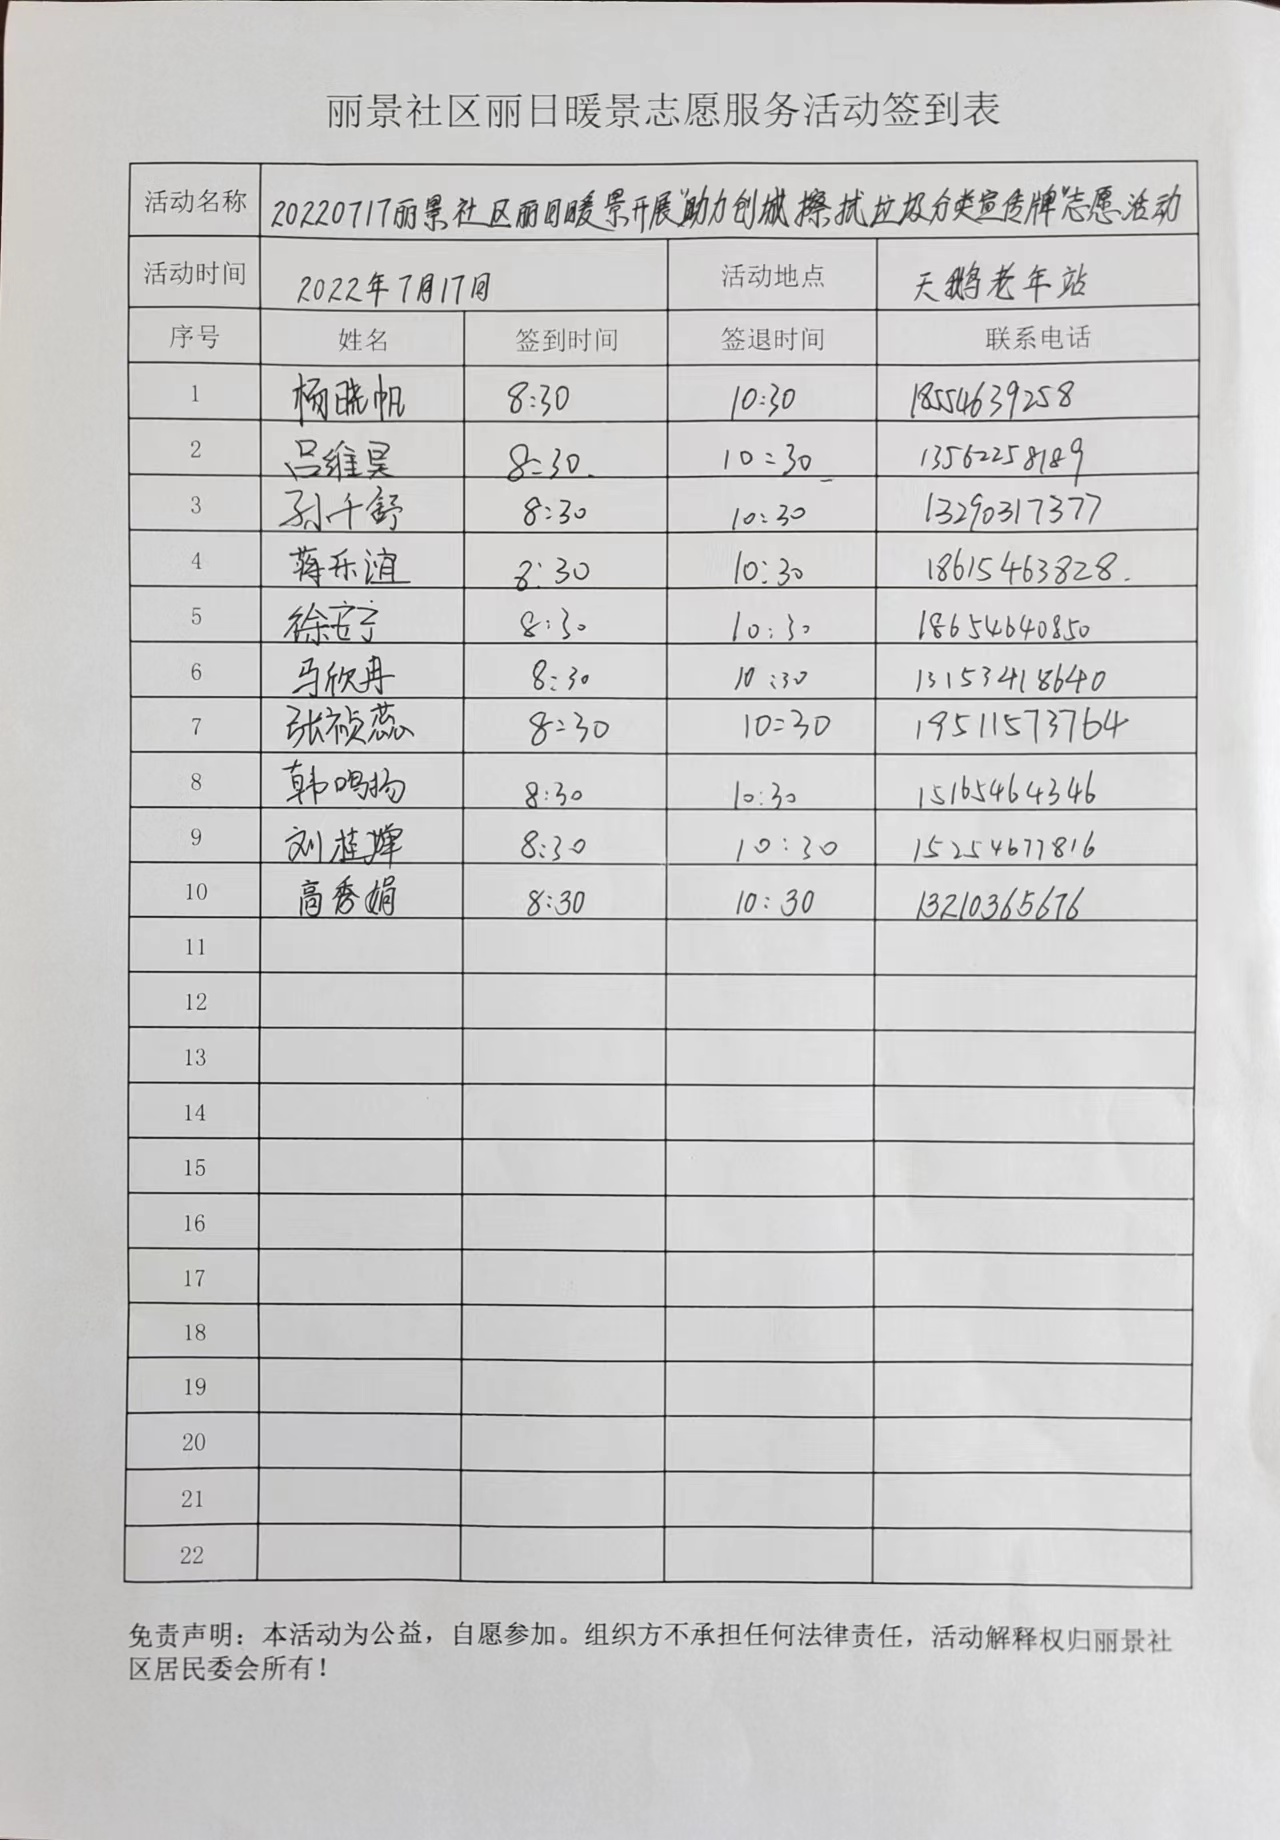 丽景社区丽日暖景志愿服务活动签到表
活动名称 20220717丽景社区丽日暖景开展"助力创城擦拭垃圾分类宣传牌"志愿活动
活动时间 2022年7月17日 活动地点 天鹅老年站
序号 姓名 签到时间 签退时间 联系电话
1 杨晓帆 8:30 10:30 18554639258
2 吕维昊 8:30 10:30 13562258189
3 孙千舒 8:30 10:30 13290317377
4 蒋乐谊 8:30 10:30 18615463828
5 徐安宁 8:30 10:30 18654640850
6 马欣冉 8:30 10:30 13153418640
7 张祯蕊 8:30 10:30 19511573764
8 韩鸣扬 8:30 10:30 15165464346
9 刘桂 8:30 10:30 15254677816
10 高秀娟 8:30 10:30 13210365676
11
12
13
14
15
16
17
18
19
20
21
22
免责声明：本活动为公益，自愿参加。组织方不承担任何法律责任，活动解释权归丽景社
区居民委会所有！